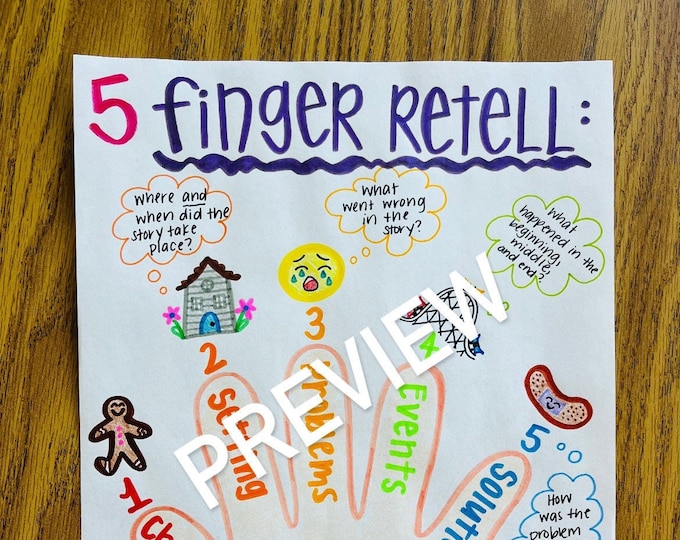 5 finger RETELL:
Where and
when did the
story take
place?
What
went wrong
in the
story?
What
happened in the
beginning,
middle,
and end?
2 Setting
3 Problems
4 Events
1 Ch
5 Soluti
How
was the
problem
PREVIEW